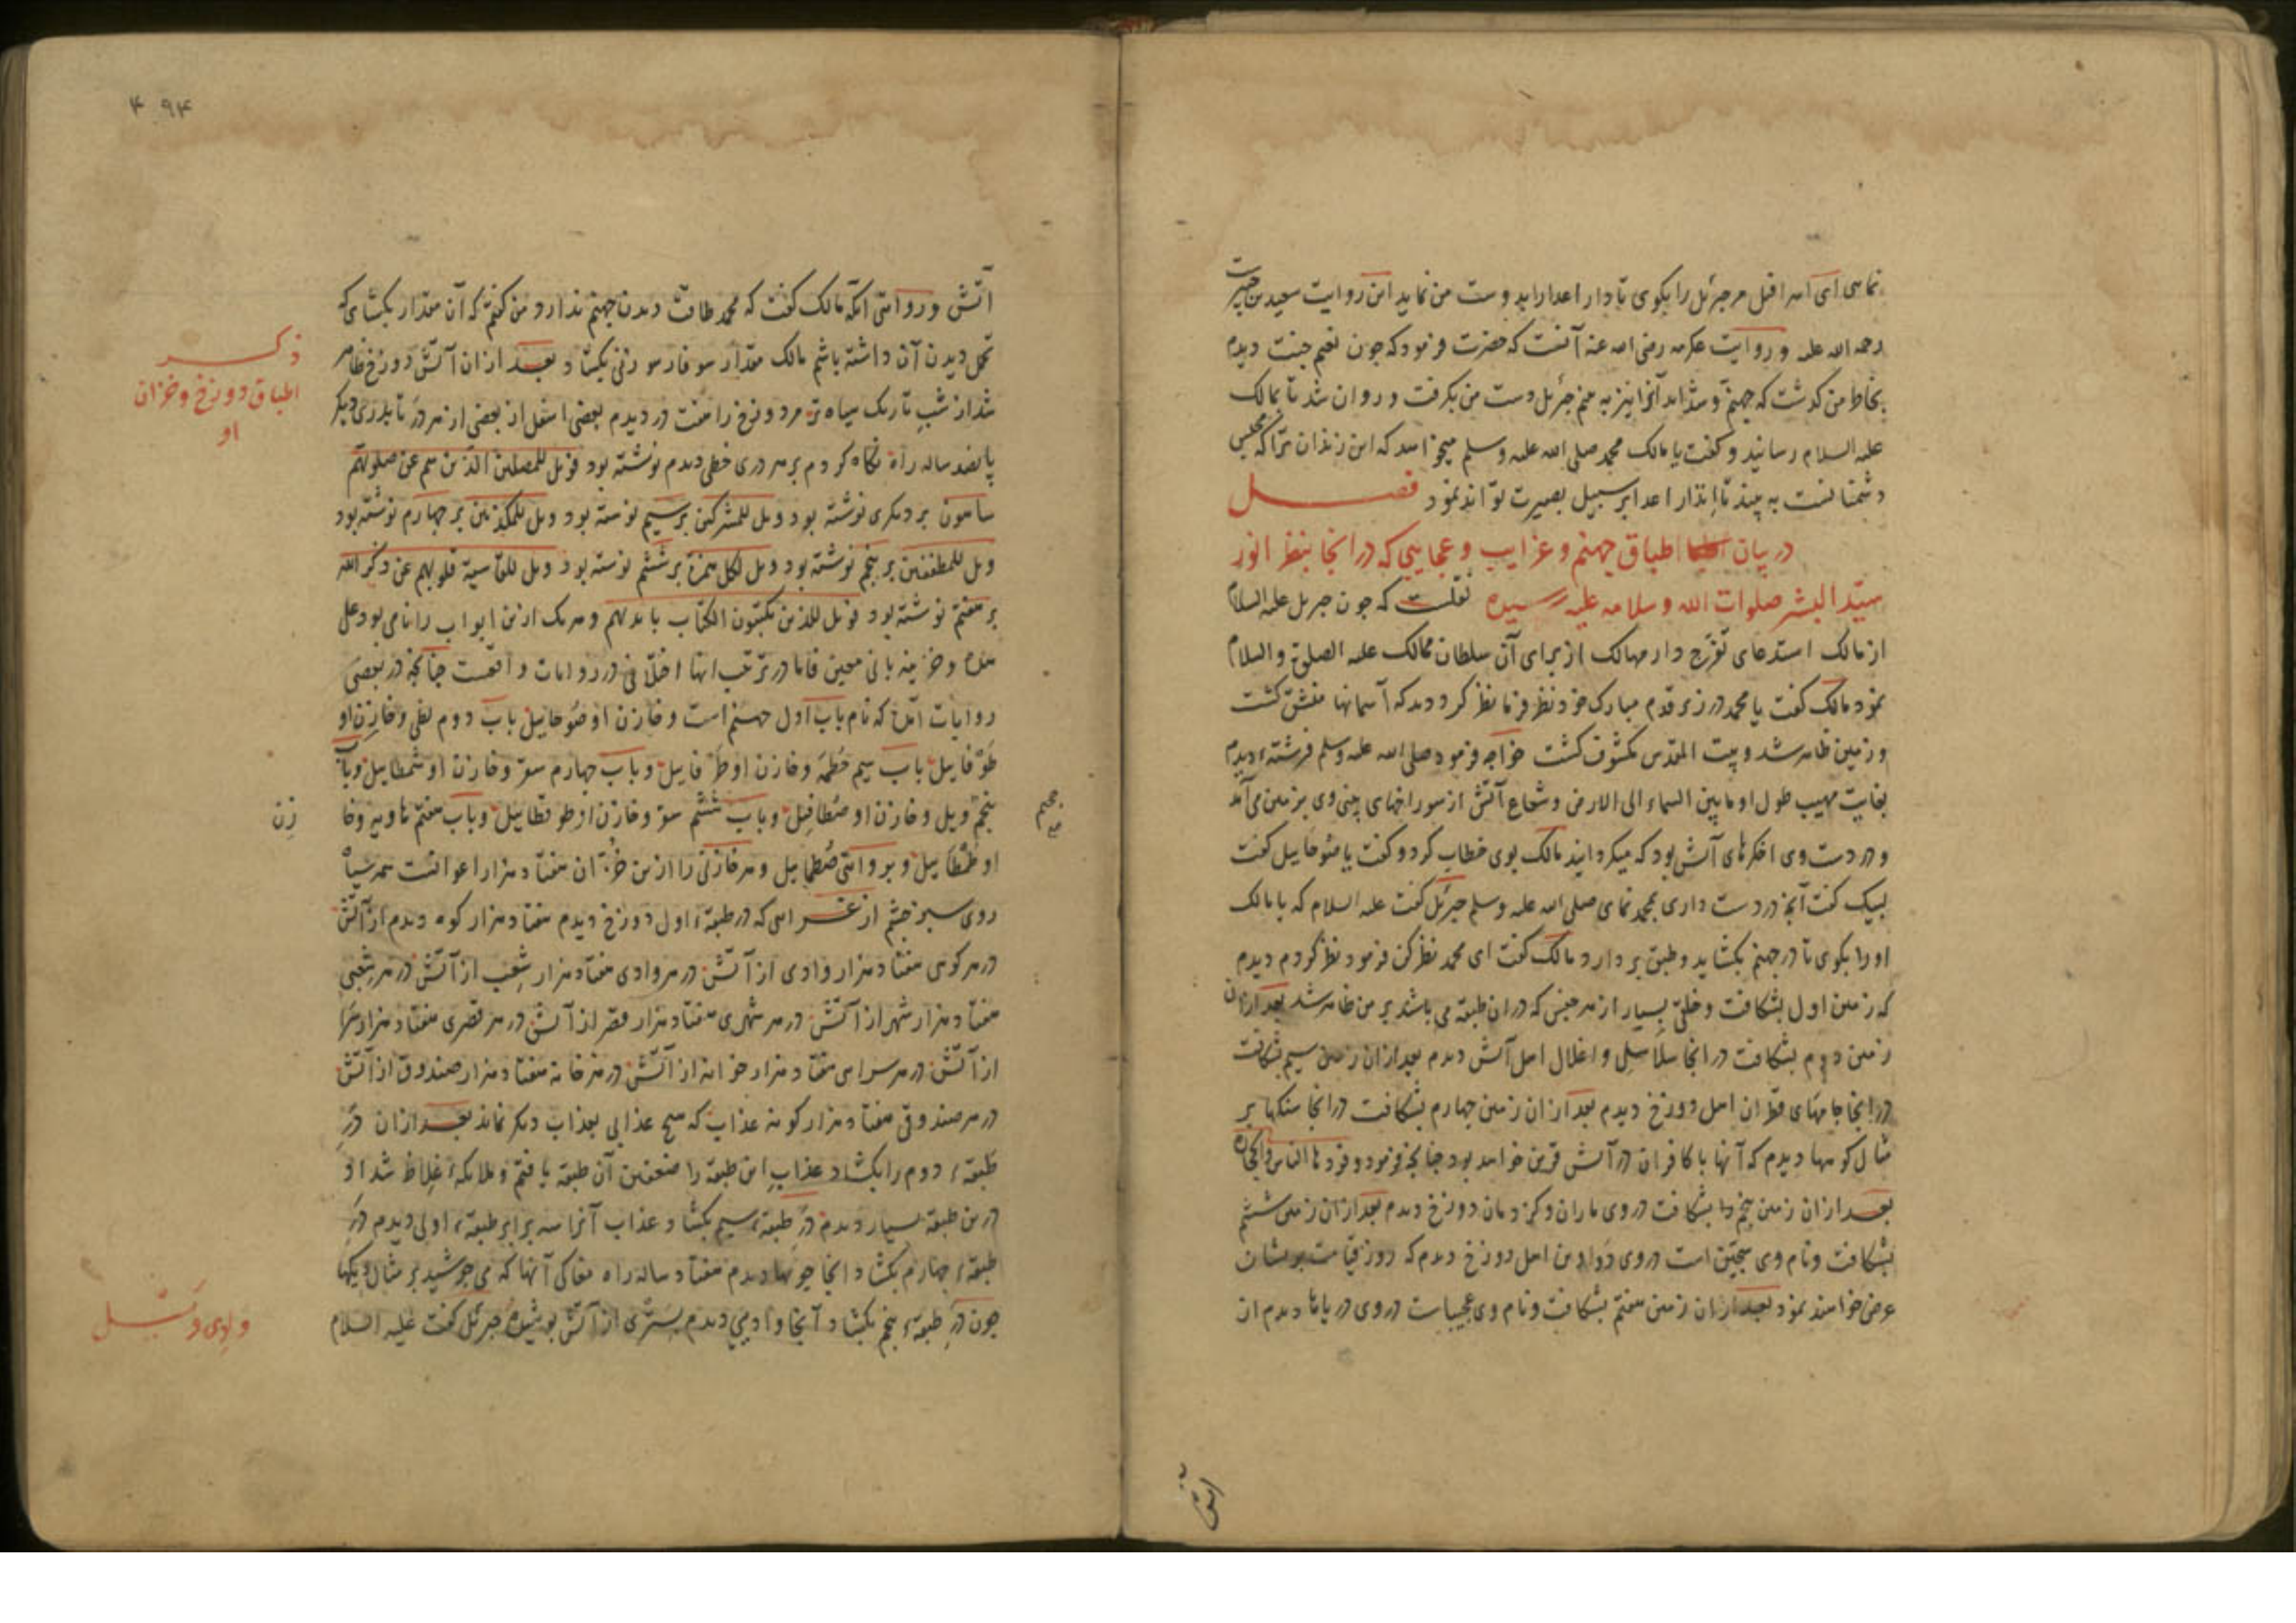 نمای ای اسرافیل مر جبرئیل را بکوی تا دار اعدا را بدوست من نماید این روایت سعید بن جبیرست
رحمه الله علیه و روایت عکرمه رضی الله عنه آنست که حضرت فرمود که جون نعیم جنت دیدم
بخاطر من کذشت که جهنم و شداید آنرا نیز به بینم جبرئل دست من بکرفت و روان شد تا بمالک
علیه السلام رسانید و کفت یا مالک محمد صلی الله علیه وسلم میخواهد که این زندان ترا که محبس
دشمنانست به بیند تا انذار اعدا بر سبیل بصیرت تواند نمود فصل
در بیان اطباق جهنم و غرایب و عجایبی که در انجا بنظر انور
سید البشر صلوات الله و سلامه علیه رسیده نقلست که جون جبریل علیه السلام
از مالک استدعای تفرج دار مهالک از برای آن سلطان ممالک علیه الصلوة والسلام
نمود مالک کفت یا محمد در زیر قدم مبارک خود نظر فرما نظر کرد دید که آسمانها منشق کشت
و زمین ظاهر شد و بیت المقدس مکشوف کشت خواجه فرمود صلی الله علیه وسلم فرشتهء دیدم
بغایت مهیب طول او ما بین السماء الی الارض و شعاع آتش از سوراخهای بینی وی بر زمین می آمد
و در دست وی اخکرهای آتش بود که میکردانید مالک بوی خطاب کرد و کفت یا صوحاییل کفت
لبیک کفت آنجه در دست داری بمحمد نمای صلی الله علیه وسلم جبرئل کفت علیه السلام که یا مالک
او را بکوی تا در جهنم بکشاید و طبق بر دارد مالک کفت ای محمد نظر کن فرمود نظر کردم دیدم
که زمین اول بشکافت و خلق بسیار از هر جنس که در ان طبقه می باشد بر من ظاهر شد بعد ازان
زمین دوم بشکافت در انجا سلاسل و اغلال اهل آتش دیدم بعد ازان زمین سیم بشکافت
در انجا جامهای قطران اهل دوزخ دیدم بعد ازان زمین جهارم بشکافت در انجا سنکها بر
مثال کوهها دیدم که آنها با کافران در آتش قرین خواهد بود جنانکه فرمود وقودها الناس والحجارة
بعد ازان زمین پنجم را بشکافت در وی ماران و کژدمان دوزخ دیدم بعد ازان زمین ششم
بشکافت و نام وی سجین است در وی دواوین اهل دوزخ دیدم که روز قیامت بریشان
عرض خواهند نمود بعد ازان زمین هفتم بشکافت و نام وی عجیباست در وی دریاها دیدم از
آتش
۴۹۴
آتش و روایتی آنکه مالک کفت که محمد طاقت دیدن جهنم ندارد و من کفتم که آن مقدار بکشای که
تحمل دیدن آن داشته باشم مالک مقدار سوفار سوزنی بکشاد بعد ازان آتش دوزخ ظاهر
شد از شب تاریک سیاه تر مر دوزخ را هفت در دیدم بعضی اسفل از بعضی از هر در تا بدری دیکر
پانصد ساله راه نکاه کردم بر هر دری خطی دیدم نوشته بود فویل للمصلین الذین هم عن صلوتهم
ساهون بر دیکری نوشته بود ویل للمشرکین بر سیم نوشته بود ویل للمکذبین بر جهارم نوشته بود
ویل للمطففین بر پنجم نوشته بود ویل لکل همزة بر ششم نوشته بود ویل للقاسیة قلوبهم عن ذکر الله
بر هفتم نوشته بود فویل للذین یکتبون الکتاب بایدیهم و هر یک ازین ابواب را نامی بود علی
حده و خزینه بانی معین فاما در ترتیب اینها اختلافی در روایات واقعست جنانجه در بعضی
روایات آمده که نام باب اول جهنم است و خازن او صوحاییل باب دوم لظی و خازن او
طوفاییل باب سیم حطمه و خازن او طرفاییل و باب جهارم سعیر و خازن او شمطاییل و باب
پنجم ویل و خازن او صطافیل و باب ششم سقر و خازن او طوفطاییل و باب هفتم هاویه و خا
زن
جحیم
او طمطاییل و بروایتی صطماییل و هر خازنی را ازین خزان هفتاد هزار اعوانست همه سیاه
روی سبز جشم از غرایبی که در طبقهء اول دوزخ دیدم هفتاد هزار کوه دیدم از آتش
در هر کوهی هفتاد هزار وادی از آتش در هر وادی هفتاد هزار شعب از آتش در هر شعبی
هفتاد هزار شهر از آتش در هر شهری هفتاد هزار قصر از آتش در هر قصری هفتاد هزار سرا
از آتش در هر سرای هفتاد هزار خانه از آتش در هر خانه هفتاد هزار صندوق از آتش
در هر صندوقی هفتاد هزار کونه عذاب که هیج عذابی بعذاب دیکر نماند بعد ازان در
طبقهء دوم را بکشاد عذاب این طبقه را ضعفین آن طبقه یافتم و ملائکهء غلاظ شداد
درین طبقه بسیار دیدم در طبقهء سیم بکشاد عذاب آنرا سه برابر طبقهء اولی دیدم در
طبقهء جهارم بکشاد انجا جویها دیدم هفتاد ساله راه مغاکی آنها که می جوشید بر مثال دیکها
جون در طبقهء پنجم بکشاد آنجا وادیی دیدم بستری از آتش پوشیده جبرئل کفت علیه السلام
ذکر
اطباق دوزخ و خزان
او
وادی ویل